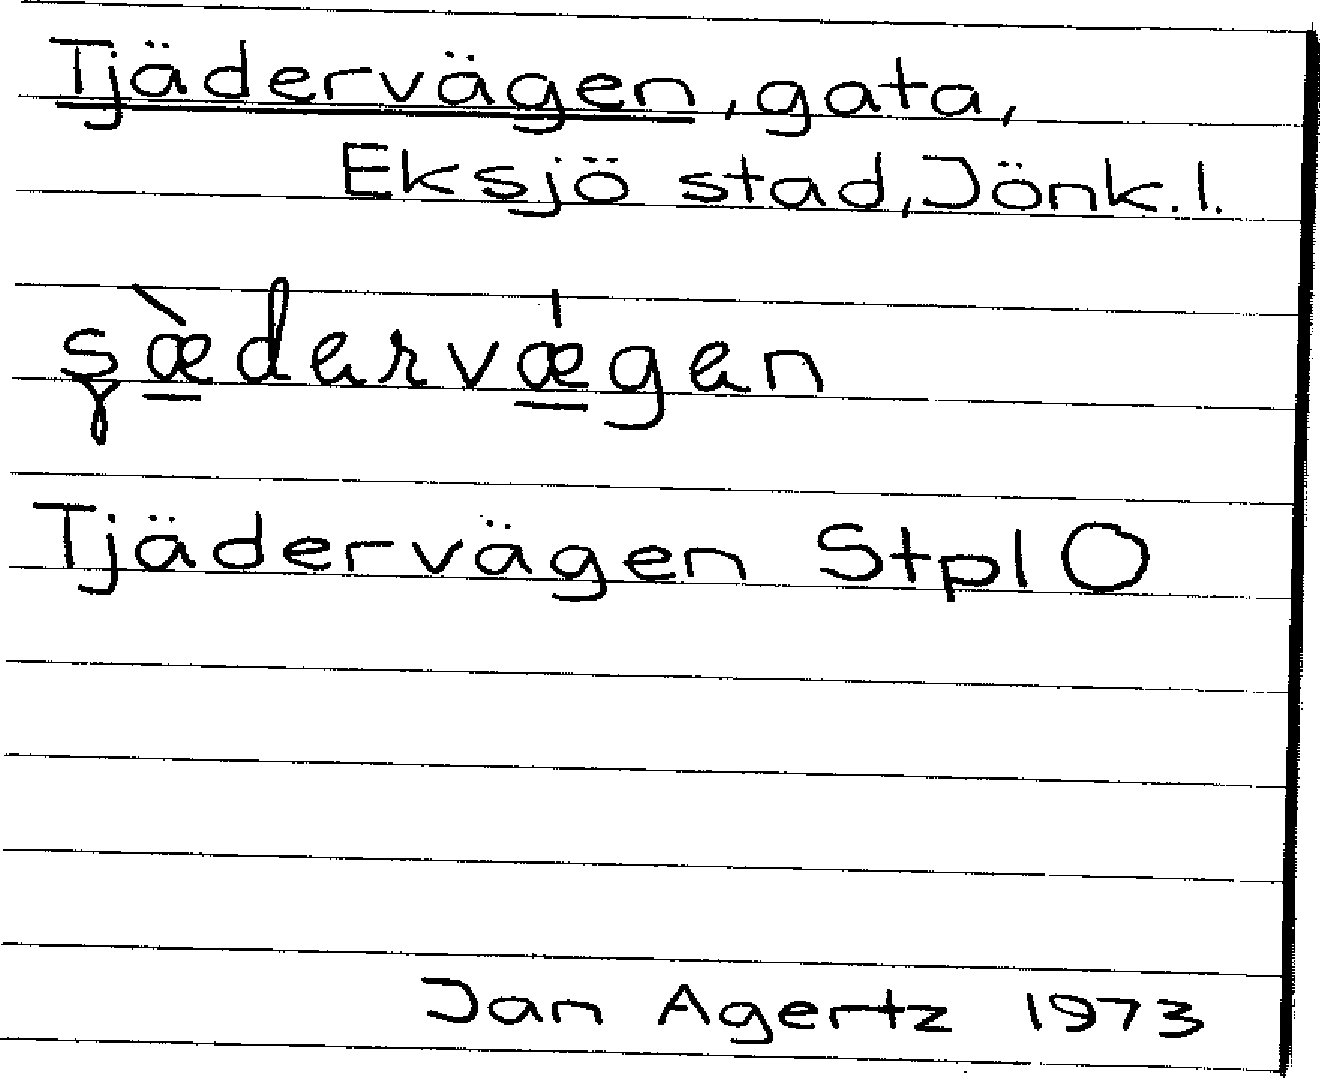 Tjädervägen, gata,
Eksjö stad, Jönk. l.
ʂæ̀dərvǽgən
Tjädervägen Stpl O
Jan Agertz 1973